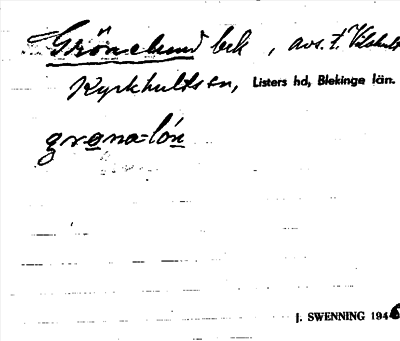 Grönelund bek , avs. t. Vilshult
Kyrkhults sn, Listers hd, Blekinge län.
grøna=lón
J. SWENNING 1946